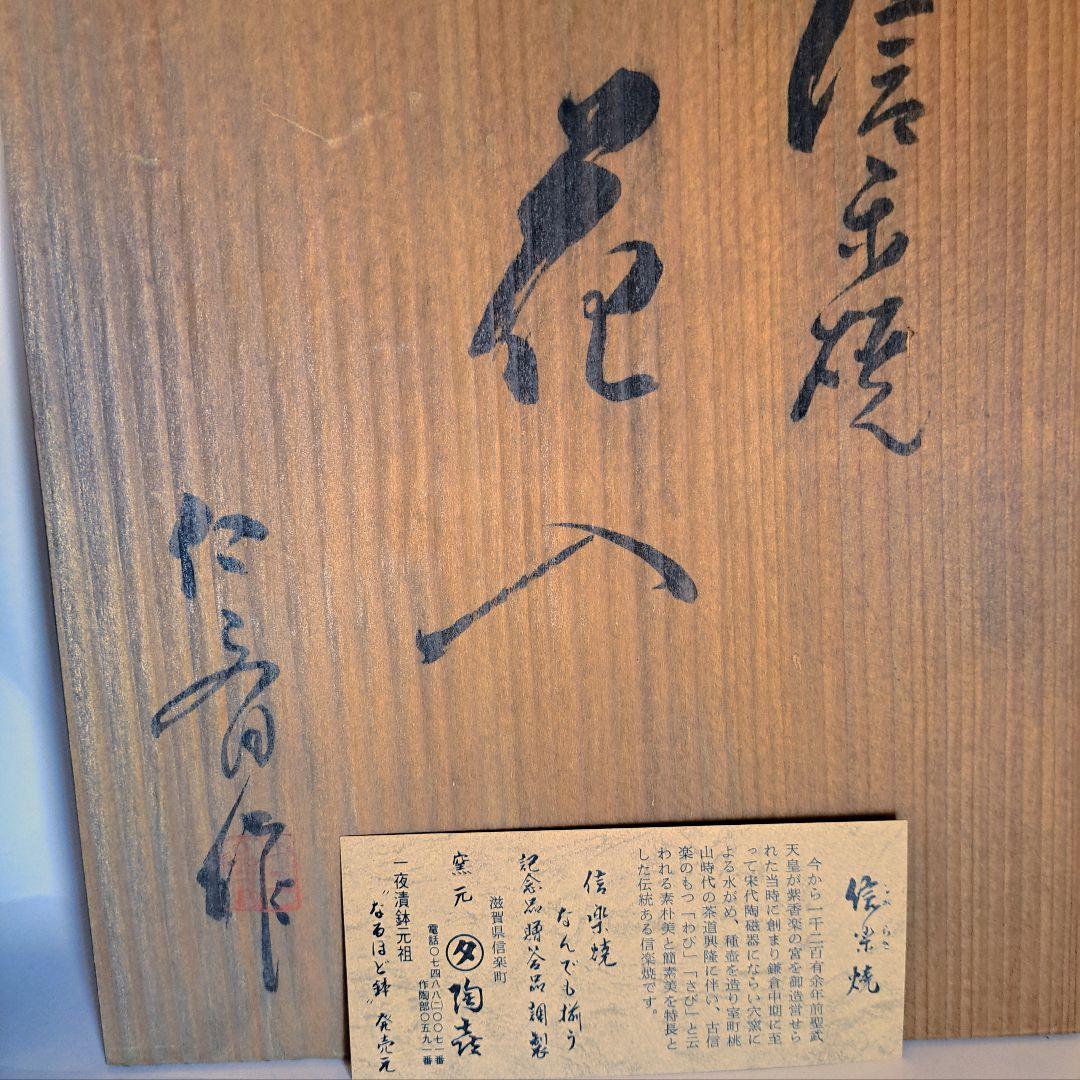 信楽焼
花入
仁
作
信楽焼
しがらき
今から一千二百有余年前聖武
天皇が紫香楽の宮を御造営せら
れた当時に創まり鎌倉中期に至
って宋代陶磁器にならい穴窯に
よる水がめ、種壺を造り室町桃
山時代の茶道興隆に伴い、古信
楽のもつ「わび」「さび」と云
われる素朴美と簡素美を特長と
した伝統ある信楽焼です。
信楽焼
なんでも揃う
記念品贈答品調製
滋賀県信楽町
窯元 夕 陶㐂
電話〇七四八八(二)〇〇七一番
作陶部〇五九一番
一夜漬鉢元祖
"なるほど鉢" 発売元